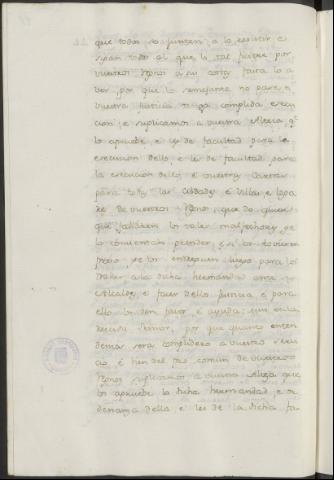 que todos se junten a lo resistir e
sean todo el que lo tal fiziere por
vuestros Reynos a su costa para lo a
ver por que lo semejante no pase e
vuestra justicia aya complida execu
cion, e suplicamos a vuestra Alteza q.
lo apruebe e le de facultad para la
execucion dello e le de facultad para
la execucion dello e vuestras Cartas
para todas las cibdades e Villas e logo
res de vuestros Reynos, que do quier
que fallaren los tales malfechores que
lo cometan prender, e si lo tovieren
preso ge lo entreguen luego para lo
traher a la dicha Hermandad ante su
Alcalde, e facer dello justicia e para
ello lo den favor e ayuda, que en la
decisi Senor, por que quanto enten
demos sera complidero a vuestro servi
cio, e bien del pro comun de vuestros
Reynos suplicamos a vuestra Alteza que
lo apruebe la dicha hermandad e or
denanza della e les de la dicha fa